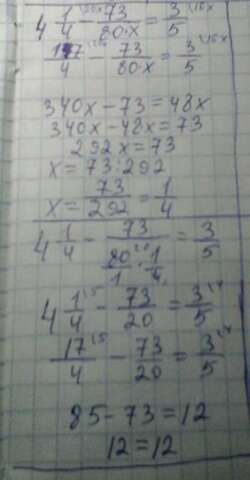 4 1/4 - 73/80·x = 3/5
17/4 - 73/80·x = 3/5
340x - 73 = 48x
340x - 48x = 73
292x = 73
x = 73:292
x = 73/292 = 1/4
4 1/4 - 73/(80/1 · 1/4) = 3/5
4 1/4 - 73/20 = 3/5
17/4 - 73/20 = 3/5
85 - 73 = 12
12 = 12